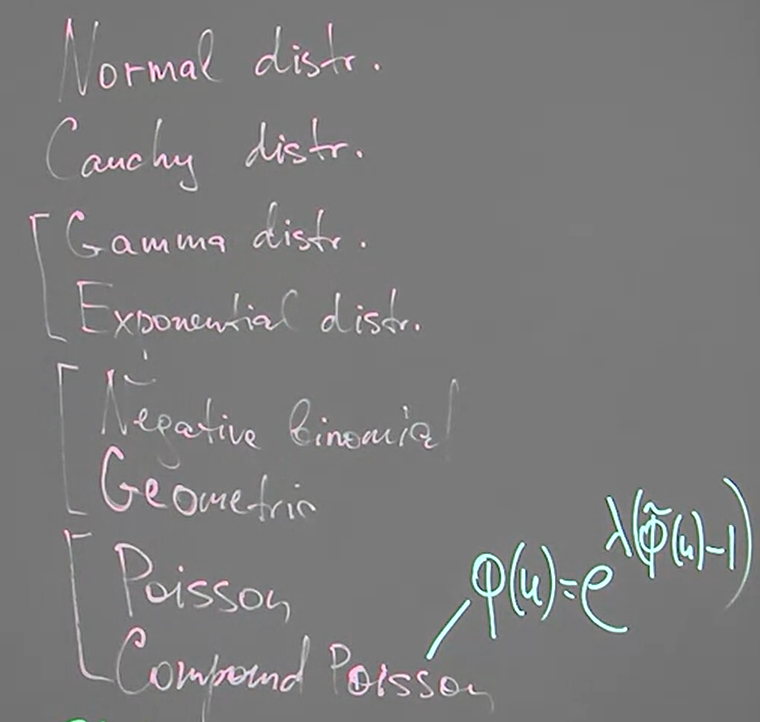 Normal distr.
Cauchy distr.
Gamma distr.
Exponential distr.
Negative binomial
Geometric
Poisson
Compound Poisson
φ(u)=e^{λ(φ̃(u)-1)}